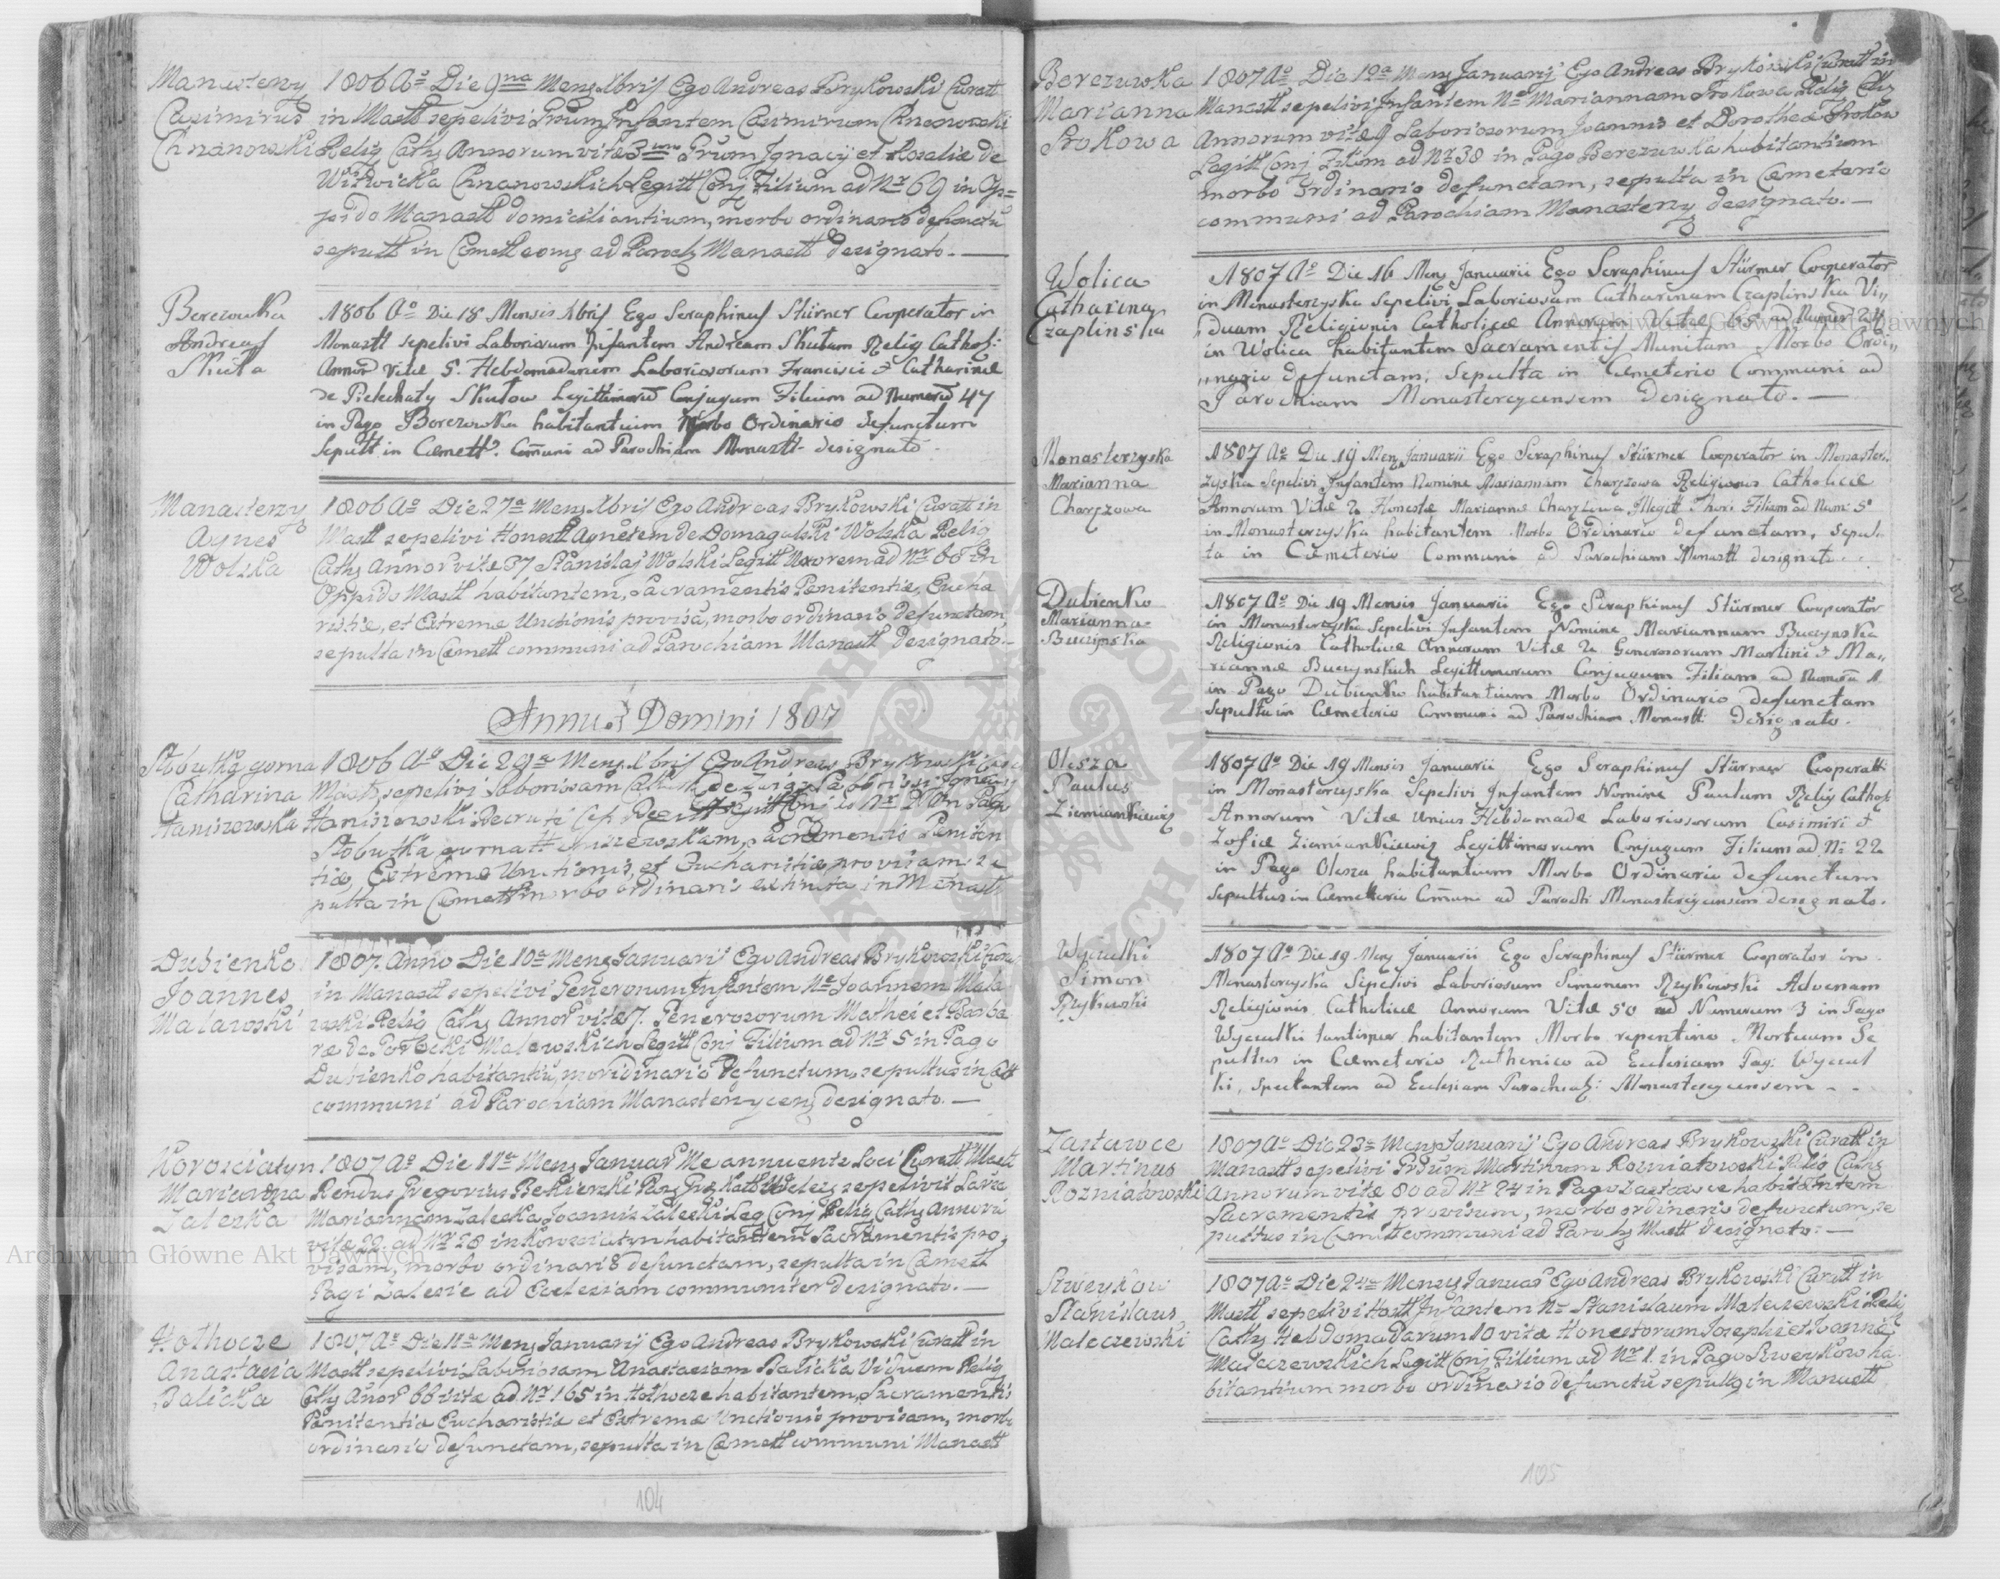 Manasterzy
Casimirus
Chrzanowski
1806 Ao Die 9na Mens Xbris Ego Andreas Brykowski Curatt
in Mastt sepelivi Infantem Casimirum Chrzanowski
Relig Cath Annorum vitæ 3 Ignacij et Rosaliæ de
Witwicka Legitt Conj Filium ad Nr 69 in Op=
pido Manastt domiciliantium, morbo ordinario defunctu
sepult in Cemett ad Paroch Manastt designato. —
Berezowka
Andreas
Skuta
1806 Ao Die 18 Mensis Xbris Ego Seraphinus Stürmer Cooperator in
Monastt sepelivi Laboriosum Infantem Andream Skutam Relig Cathol:
Annor Vitæ 5. Hebdomadarum Laboriosorum Francisci & Catharinæ
de Piekchaty Skutow Legittimorum Conjugum Filium ad Numerum 47
in Pago Berezowka habitantium Morbo Ordinario defunctum
Sepult in Cæmett. Comuni ad Parochiam Monastt. designato.
Manasterzy
Agnes
Wolska
1806 Ao Die 27a Mens Xbris Ego Andreas Brykowski Curatt in
Mastt sepelivi Honest Agnetem de Domagalski Wolska Relig
Cath Annor vitæ 37 Stanislaj Wolski Legitt Uxorem ad Nr 68 in
Oppido Mastt habitantem, Sacramentis Pænitentiæ, Eucha
ristiæ, et Extreme Unctionis provisa, morbo ordinario defunctam
sepulta in Cæmett communi ad Parochiam Manastt designato. —
Annus Domini 1807
Catharina
Staniszewska
1806 Ao Die 29a Mens Xbris Ego Andreas Brykowski
sepelivi Laboriosam
Staniszewski
Sacramentis Peniten
tiæ, Extreme Unctionis, et Eucharistiæ provisam, se
pulta in Cæmett morbo ordinario extincta in Manast
Dubienko
Joannes
Malawski
1807. Anno Die 10a Mens Januarij Ego Andreas Brykowski
in Manastt sepelivi Generosum Infantem Ne Joannem Mala
weski Relig Cath Annor vitæ 7. Generosorum Mathei et Barba
ræ de Malewskich Legitt Conj Filium ad Nr 5 in Pago
Dubienko habitantiu, defunctum, sepultus in
communi ad Parochiam designato. —
Korosciatyn
Marianna
Zaleska
1807 Ao Die 11a Mens Januar Me annuente Loci Curatt Mastt
Rendus Gregorius sepelivit
Mariannam Zaleska Joannis Zaleski Leg Conj Relig Cath Annoru
vitæ 22. ad Nr 28 in Korosciatyn habitantem Sacramentis pro,
visam, morbo ordinario defunctam, sepulta in Cæmett
Pagi Zalesie ad Ecclesiam communiter designato. —
Hothocze
Anastasia
Balicka
1807 Ao Die 11a Mens Januarij Ego Andreas Brykowski Curatt in
Mastt sepelivi Laboriosam Anastasiam Balicka Viduem Relig
Cath Annor 66 vitæ ad Nr 165 in Hothocze habitantem, Sacramentis
Penitentiæ Eucharistiæ et Extremæ Unctionis provisam, morb
ordinario defunctam, sepulta in Cæmett communi Manastt
104
Berezuwka
Marianna
Srokowa
1807 Ao Die 12a Mens Januarij Ego Andreas Brykowski Curatt in
Manastt sepelivi Infantem Ne Mariannam Srokowa Relig Cath
Annorum vitæ 9 Laboriosorum Joannis et Dorotheæ Srokow
Legitt Conj Filiam ad Nr 38 in Pago Berezuwka habitantium
morbo Ordinario defunctam, sepulta in Cæmeterio
communi ad Parochiam Monasterzy designato. —
Wolica
Catharina
Czaplinska
1807 Ao Die 16 Mens Januarii Ego Seraphinus Stürmer Cooperator
in Monasterzyska Sepelivi Laboriosam Catharinam Czaplinska Vi,,
duam Religionis Catholicæ Annorum Vitæ 65 ad Numer 24
in Wolica habitantem Sacramentis Munitam Morbo Ordi,,
,,nario defunctam, Sepulta in Cemeterio Communi ad
Parochiam Monasterzycensem designato. —
Monasterzyska
Marianna
Charzowa
1807 Ao Die 19 Mens Januarii Ego Seraphinus Stürmer Cooperator in Monaster:
zyska Sepelivi Infantem Nomine Mariannam Charzowa Religionis Catholicæ
Annorum Vitæ 2 Honestæ Mariannæ Charzowa Illegitt Thori Filiam ad Num: 5
in Monasterzyska habitantem Morbo Ordinario defunctam, Sepul-
ta in Cæmeterio Communi ad Parochiam Monastt designat.
Dubienko
Marianna
Buczynska
1807 Ao Die 19 Mensis Januarii Ego Seraphinus Stürmer Cooperator
in Monasterzyska Sepelivi Infantem Nomine Mariannam Buczynska
Religionis Catholicæ Annorum Vitæ 2. Generosorum Martini & Ma,,
riannæ Buczynskich Legittimorum Conjugum Filiam ad Numerum 1.
in Pago Dubienko habitantium Morbo Ordinario defunctam
Sepulta in Cæmeterio Communi ad Parochiam Monastt: designato.
Olesza
Paulus
Ziemiankiewicz
1807 Ao Die 19 Mensis Januarii Ego Seraphinus Stürmer Cooperatt:
in Monasterzyska Sepelivi Infantem Nomine Paulum Relig Cathol:
Annorum Vitæ Unius Hebdomadæ Laboriosorum Casimiri &
Zofiæ Ziemiankiewicz Legittimorum Conjugum Filium ad Nr 22
in Pago Olesza habitantium Morbo Ordinario defunctum
Sepultus in Cemeterio Comuni ad Paroch Monasterzycensem designato.
Wyczulki
Simon
Rzykowski
1807 Ao Die 19 Mens Januarii Ego Seraphinus Stürmer Cooperator in
Monasterzyska Sepelivi Laboriosum Simonem Rzykowski Advenam
Religionis Catholicæ Annorum Vitæ 50 ad Numerum 3 in Pago
Wyczulki tantisper habitantem Morbo repentino Mortuum Se
pultus in Cæmeterio Ruthenico ad Ecclesiam Pag: Wyczul
ki, spectantem ad Ecclesiam Parochial: Monasterzycensem - .
Zastawce
Martinus
Rozniatowski
1807 Ao Die 23a Mens Januarij Ego Andreas Brykowski Curatt in
Manastt sepelivi Martinum Rozniatowski Relig Cath
Annorum vitæ 80 ad Nr 24 in Pago Zastawce habitantem
Sacramentis provisum, morbo ordinario defunctum, se
pultus in Cemett communi ad Paroch Mastt designato. —
Szweykow
Stanislaus
Maleczewski
1807 Ao Die 24a Mens Januar Ego Andreas Brykowski Curatt in
Mastt sepelivi Honst Infantem Ne Stanislaum Maleczewski Relig
Cath Hebdomadarum 10 vitæ Honestorum Josephi et Joannæ
Maleczewskich Legitt Conj Filium ad Nr 1. in Pago Szweykow ha
bitantium morbo ordinario defunctu sepultg in Manastt
105
Archiwum Główne Akt Dawnych
Archiwum Główne Akt Dawnych